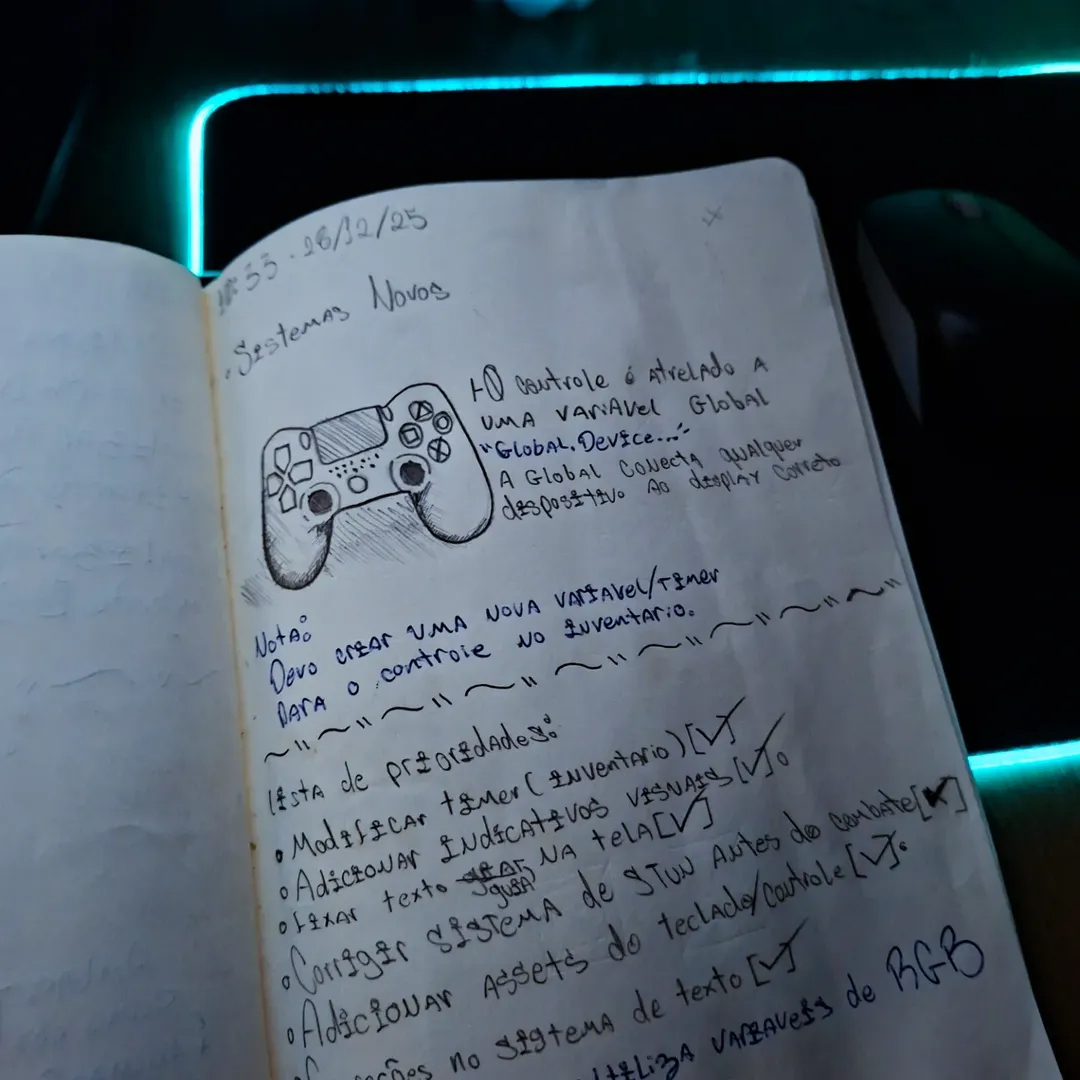 :33 - 28/12/25
• Sistemas Novos
O controle é atrelado a
uma variável Global
"Global.Device..."
A Global conecta qualquer
dispositivo ao display correto
Nota:
Devo criar uma nova variavel/timer
para o controle no inventario.
Lista de prioridades:
• Modificar timer (inventario) [✓]
• Adicionar indicativos visuais [✓].
• Fixar texto guia na tela [✓]
• Corrigir sistema de STUN antes do combate [x]
• Adicionar assets do teclado/controle [✓].
no sistema de texto [✓]
utiliza variaveis de RGB